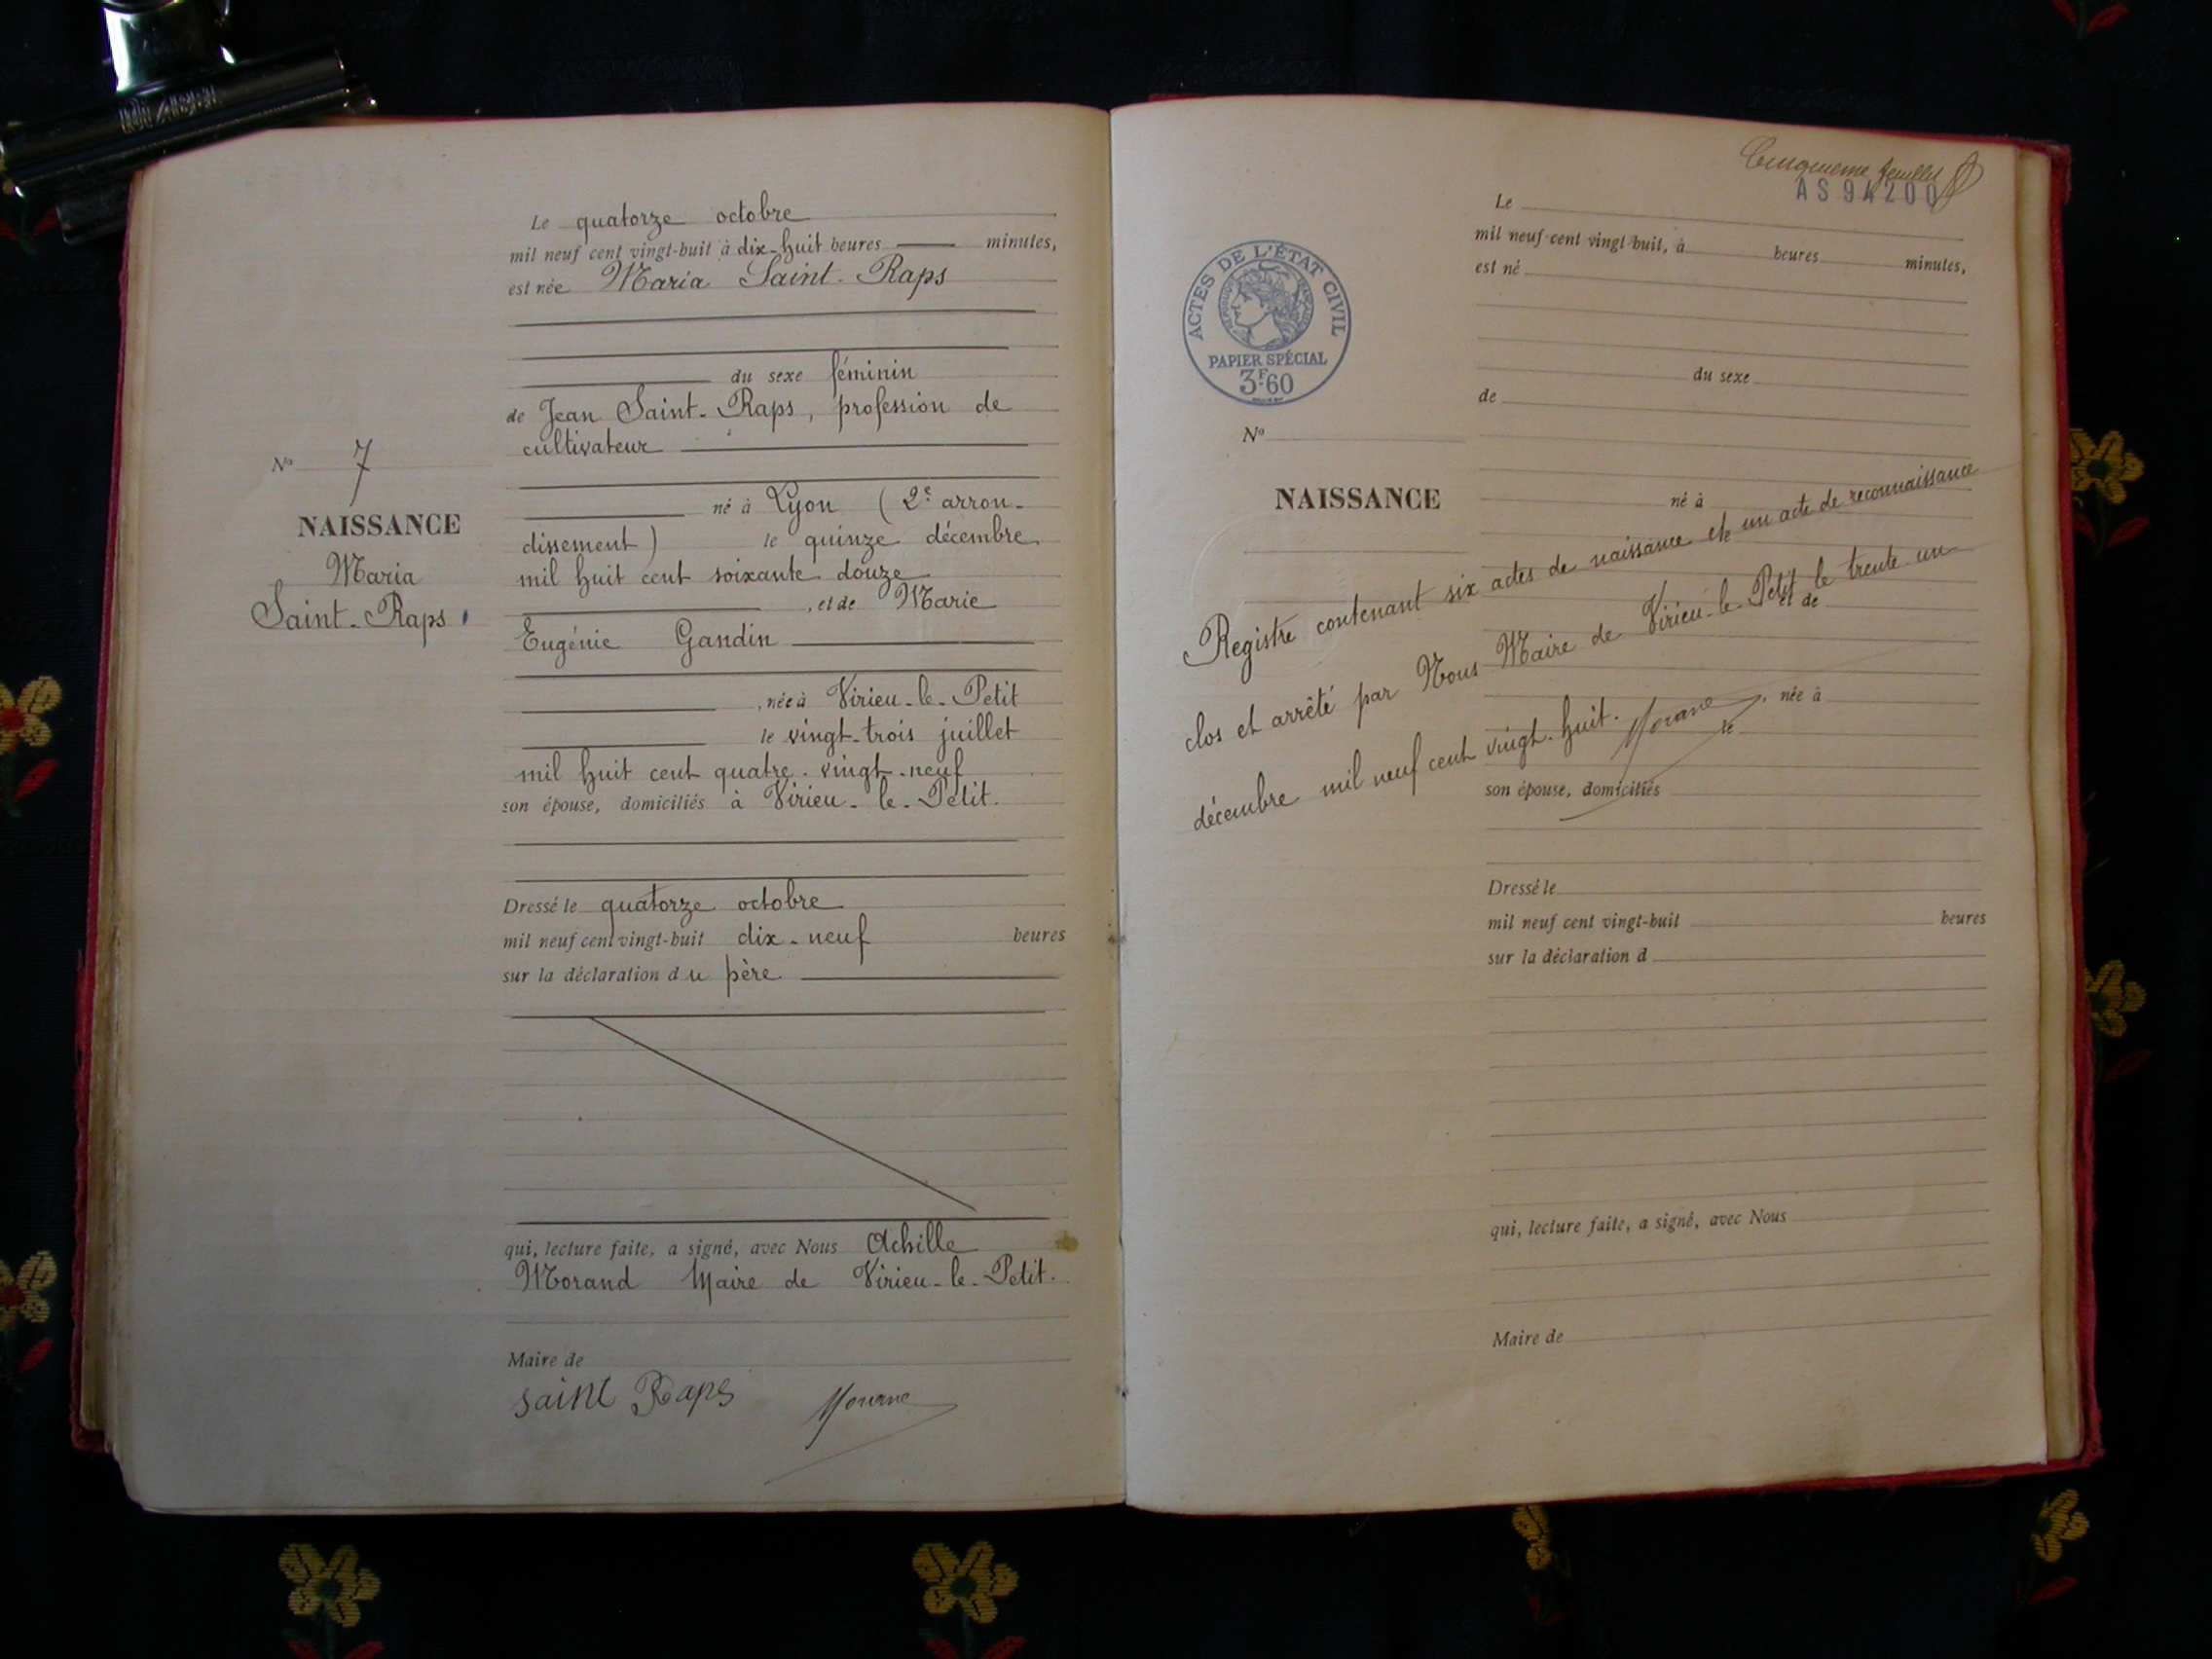 Le quatorze octobre
mil neuf cent vingt-huit à dix-huit heures minutes,
est née Maria Saint-Raps
du sexe féminin
de Jean Saint-Raps, profession de
cultivateur
né à Lyon (2e arron-
dissement) le quinze décembre
mil huit cent soixante douze
, et de Marie
Eugénie Gandin
, née à Virieu-le-Petit
le vingt-trois juillet
mil huit cent quatre-vingt-neuf
son épouse, domiciliés à Virieu-le-Petit.
Dressé le quatorze octobre
mil neuf cent vingt-huit dix-neuf heures
sur la déclaration du père
qui, lecture faite, a signé, avec Nous Achille
Morand Maire de Virieu-le-Petit.
Maire de
Saint Raps
No 7
NAISSANCE
Maria
Saint-Raps
Cinquième feuillet
AS94200
ACTES DE L'ÉTAT CIVIL
RÉPUBLIQUE FRANÇAISE
PAPIER SPÉCIAL
3F60
No
NAISSANCE
Le
mil neuf cent vingt-huit, à heures minutes,
est né
du sexe
de
né à
et de
, née à
le
son épouse, domiciliés
Registre contenant six actes de naissance et un acte de reconnaissance
clos et arrêté par Nous Maire de Virieu-le-Petit le trente un
décembre mil neuf cent vingt-huit.
Dressé le
mil neuf cent vingt-huit heures
sur la déclaration d
qui, lecture faite, a signé, avec Nous
Maire de